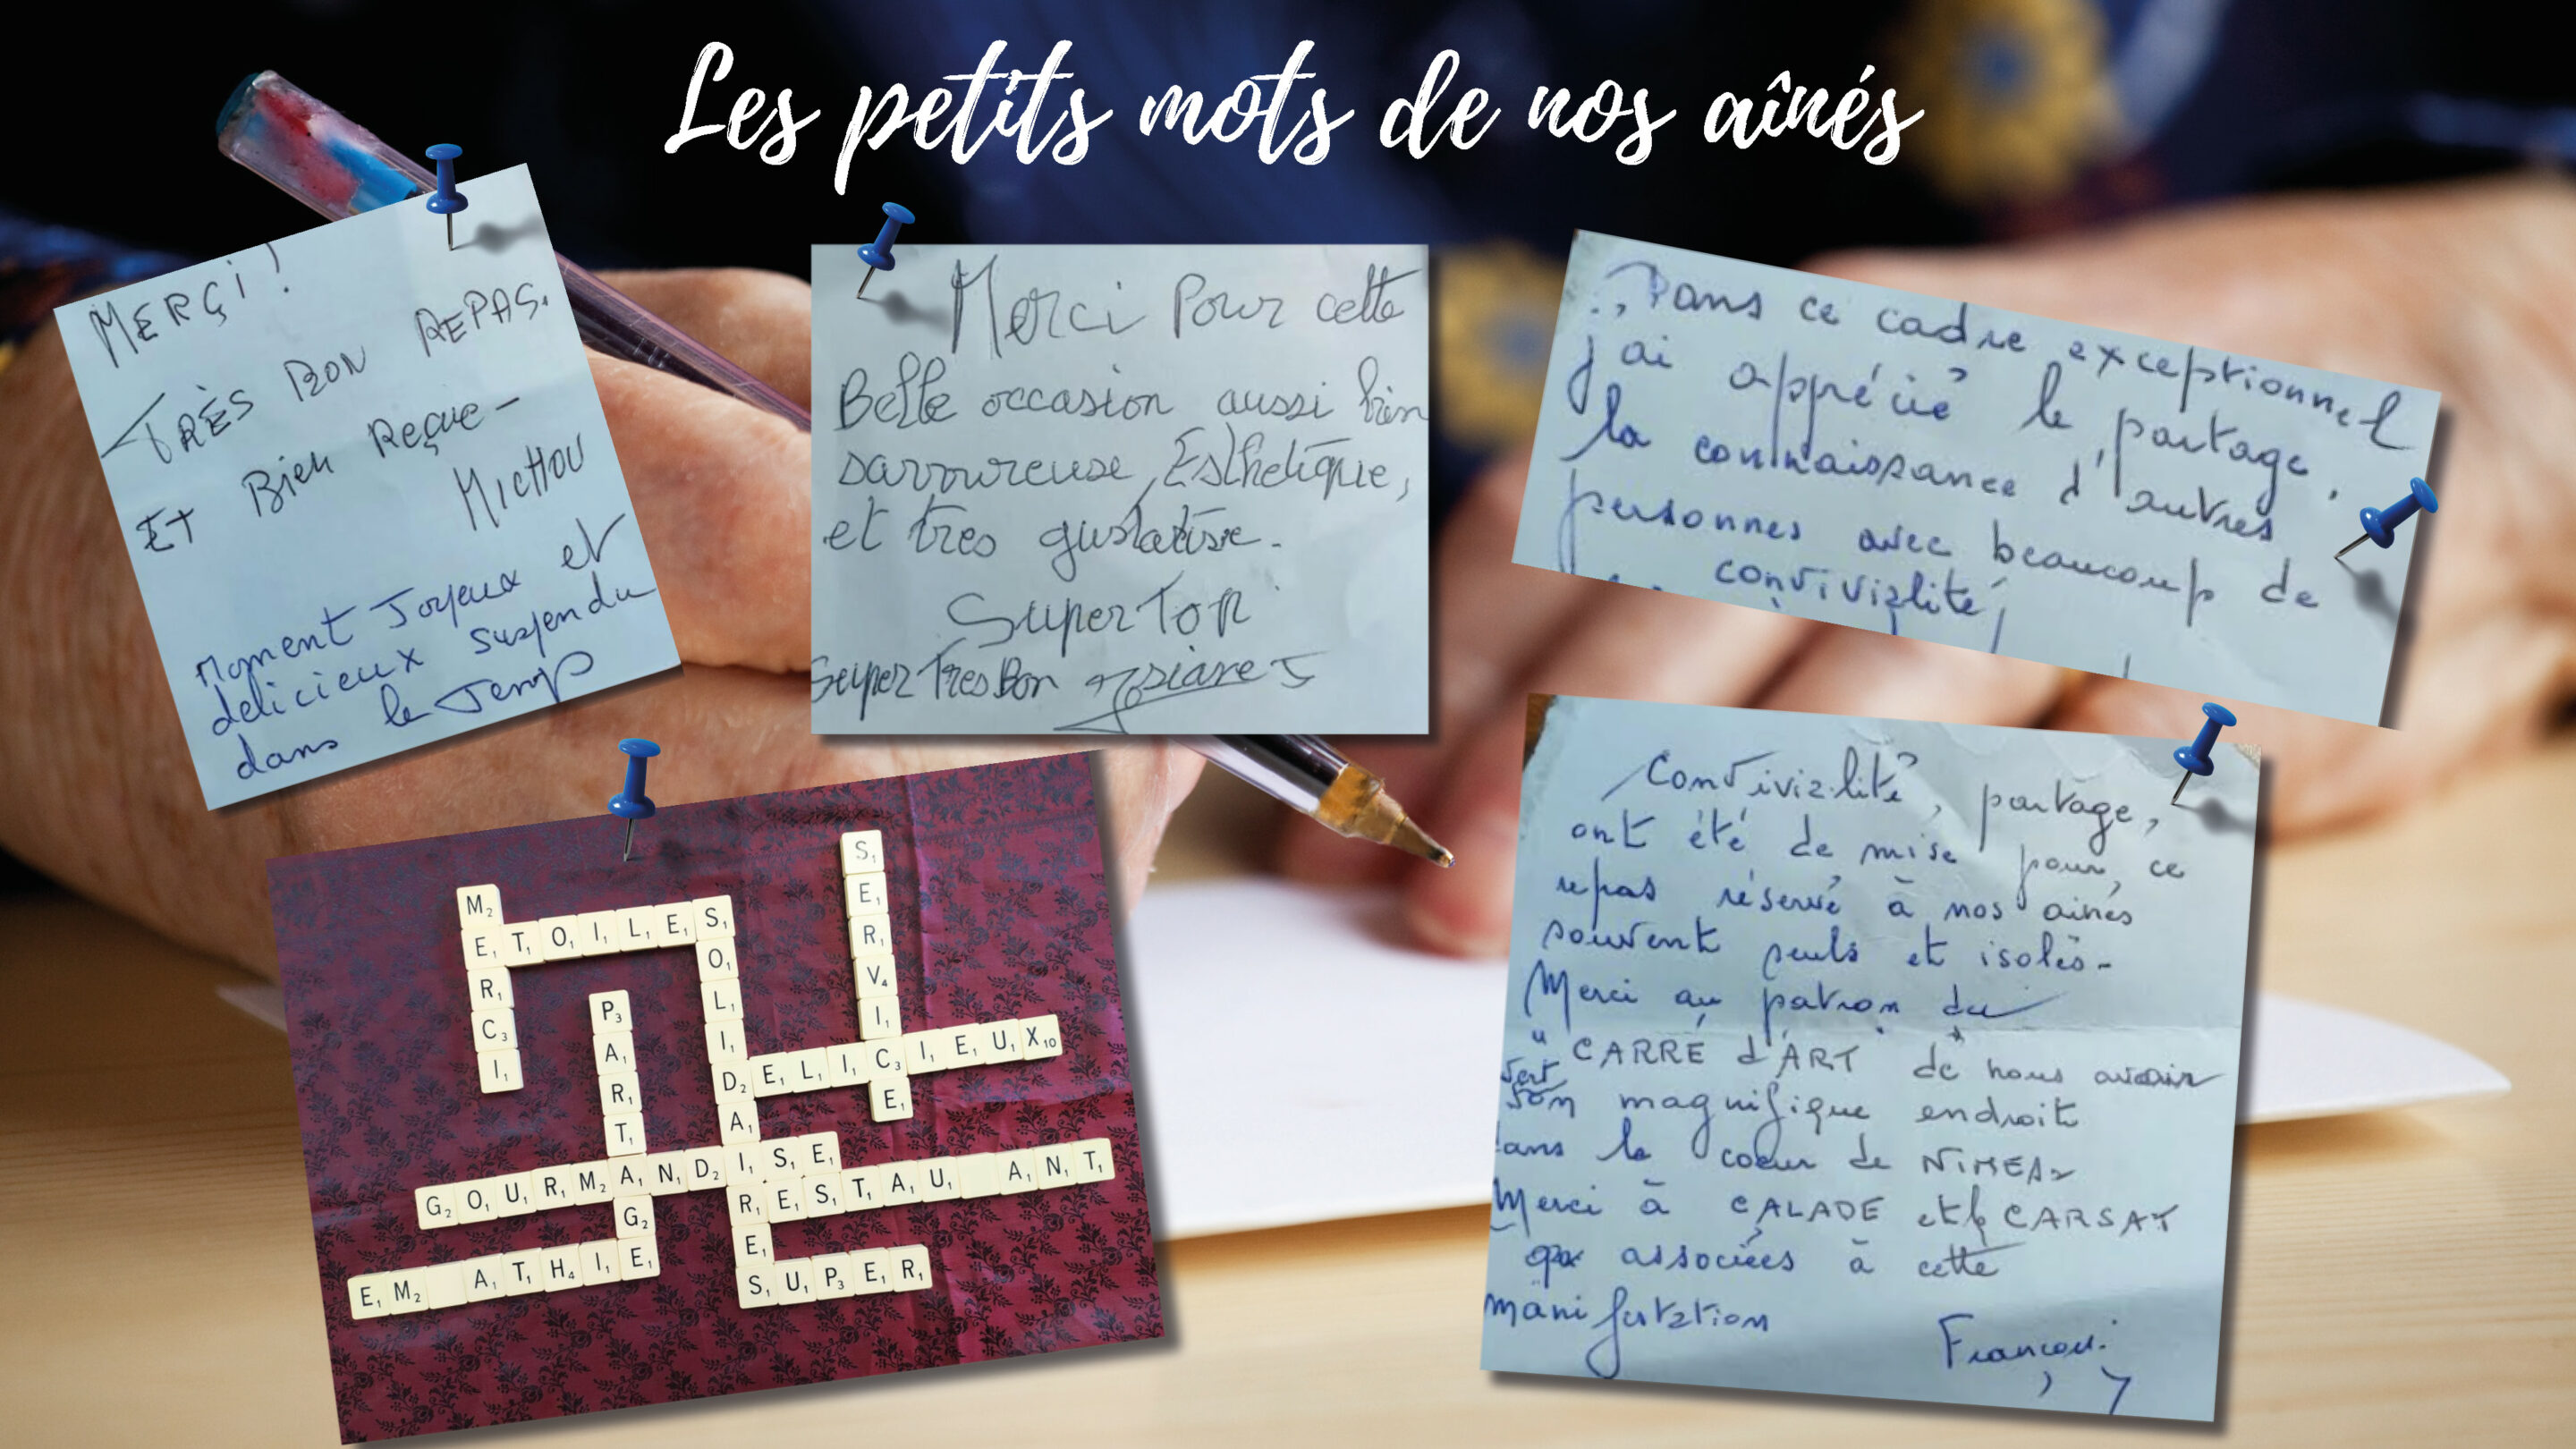 Les petits mots de nos aînés
MERÇI!
TRÈS BON REPAS.
ET Bien Reçue -
MICHOU
Moment Joyeux et
delicieux suspendu
dans le Temps
Merci Pour cette
Belle occasion aussi bien
savoureuse, Esthetique,
et tres gustative.
Super Top
Super Tres Bon Josiane
Dans ce cadre exceptionnel
j'ai apprécié le partage,
la connaissance d'autres
personnes avec beaucoup de
convivialité
Convivialité, partage,
ont été de mise pour ce
repas réservé à nos ainés
souvent seuls et isolés-
Merci au patron du
"CARRÉ d'ART" de nous avoir
son magnifique endroit
dans le coeur de NIMES
Merci à CALADE et CARSAT
associées à cette
manifestation
MERCI
ETOILES
SOLIDAIRES
SERVICE
DELICIEUX
PARTAGE
GOURMANDISE
RESTAU ANT
EM ATHIE
SUPER